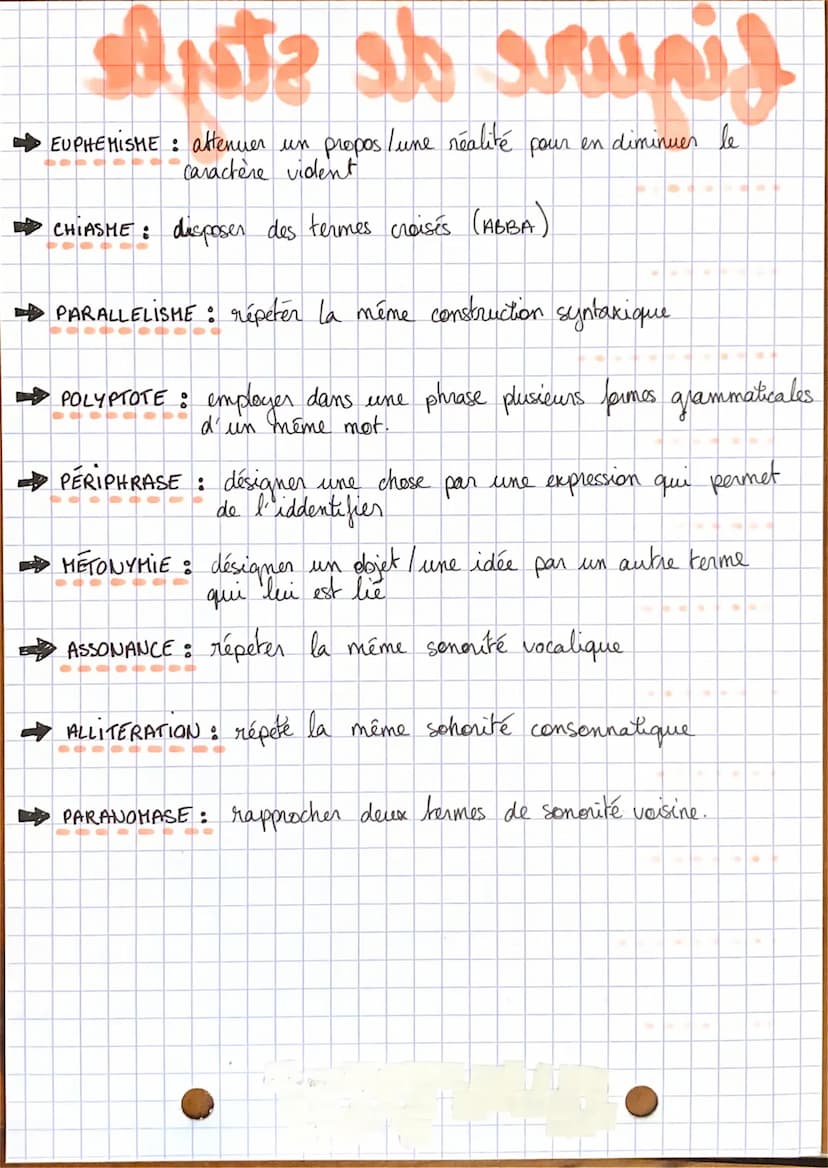 figure de style
➡ EUPHEMISME : attenuer un propos / une réalité pour en diminuer le
caractère vident
➡ CHIASME : disposer des termes croisés (ABBA)
➡ PARALLELISME : répéter la même construction syntaxique
➡ POLYPTOTE : employer dans une phrase plusieurs formes grammaticales
d'un même mot.
➡ PÉRIPHRASE : désigner une chose par une expression qui permet
de l'iddentifier
➡ MÉTONYMIE : désigner un objet / une idée par un autre terme
qui lui est lié
➡ ASSONANCE : répéter la même sonorité vocalique
➡ ALLITERATION : répété la même sonorité consonnatique
➡ PARANOMASE : rapprocher deux termes de sonorité voisine.